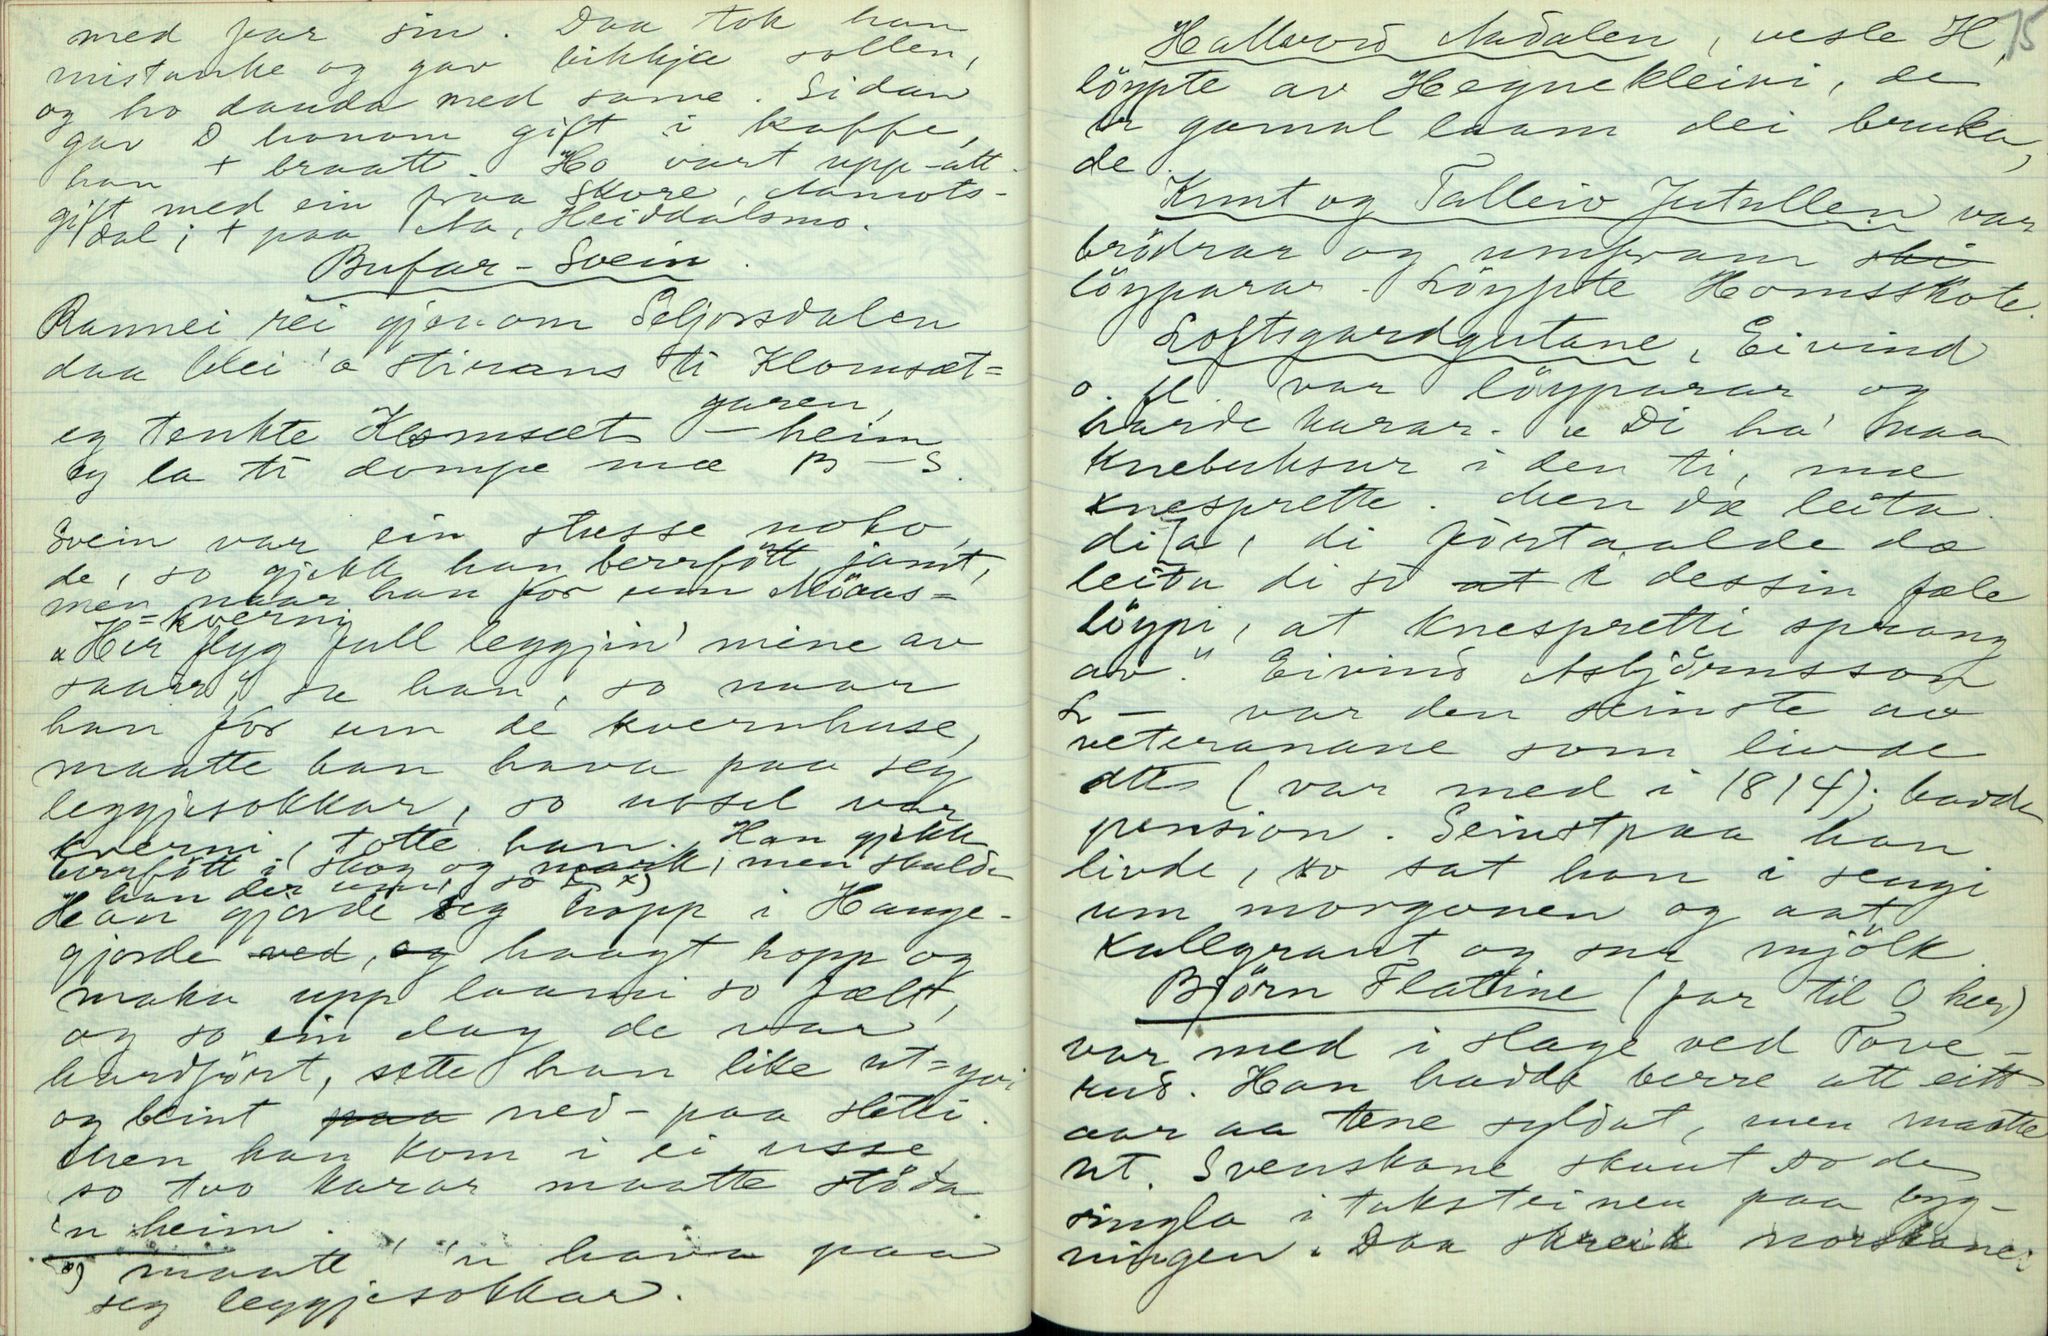 med far sin. Daa tok han
mistanke og gav bikkja sollen,
og ho dauda med same. Sidan
gav D honom gift i kaffe,
han + braatt. Ho vart upp-att
gift med ein fraa Skore, Aamots-
dal; + paa Aa, Heiddalsmo.
Bufar-Svein.
Rannei rei gjenom Seljorsdalen
daa blei 'o stirans ti Klomset=
garen,
eg tenkte Klomset - heim
eg la ti dompe mæ B-S.
Svein var ein stusse noko,
de, so gjekk han berrfött jamt,
men naar han for um Möaas-
=kverni
"Her flyg full leggjin' mine av
saar", sa han, so naar
han for um de kvernhuse,
maatte han hava paa seg
leggjesokkar, so usel var
kverni, totte han. Han gjekk
berrfött i skog og mark, men skulde
han der um, so x)
Han gjorde seg hopp i Hauge-
gjorde ved, og haagt hopp og
maka upp laami so fælt,
og so ein dag de var
hardfört, sette han like ut-yvi
og beint paa ned-paa sletti.
Men han kom i ei usse,
so tvo karar maatte stöda
'n heim.
x) maatte 'n hava paa
seg leggjesokkar.
15
Hallvord Aadalen, vesle H,
löypte av Hegnekleivi, de
er gamal laam dei bruka,
de.
Knut og Talleiv Jutullen var
brödrar og umfram ski
löyparar. Löypte Homsskote.
Loftsgardgutane, Eivind
o. fl. var löyparar og
harde karar. "Di ha' smaa
knebuksur i den ti, mæ
knesprette. Men dæ leita
di [a, di fortaalde dæ
leita di so at i dessin fæle
löypi, at knespretti sprang
av." Eivind Asbjörnsson
L- var den seinste av
veteranane som livde
att (var med i 1814); havde
pension. Seinstpaa han
livde, so sat han i sengi
um morgonen og aat
kallgraut og sur mjölk.
Björn Flatine (far til O her)
var med i slage ved Tove-
rud. Han hadde berre att eitt
aar aa tene syldat, men maatte
ut. Svenskane skaut so de
singla i taksteinen paa byg-
ningen. Daa skreik norskane: